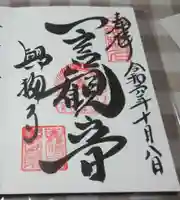 奉拝
令和六年十月八日
一言観音
興福寺